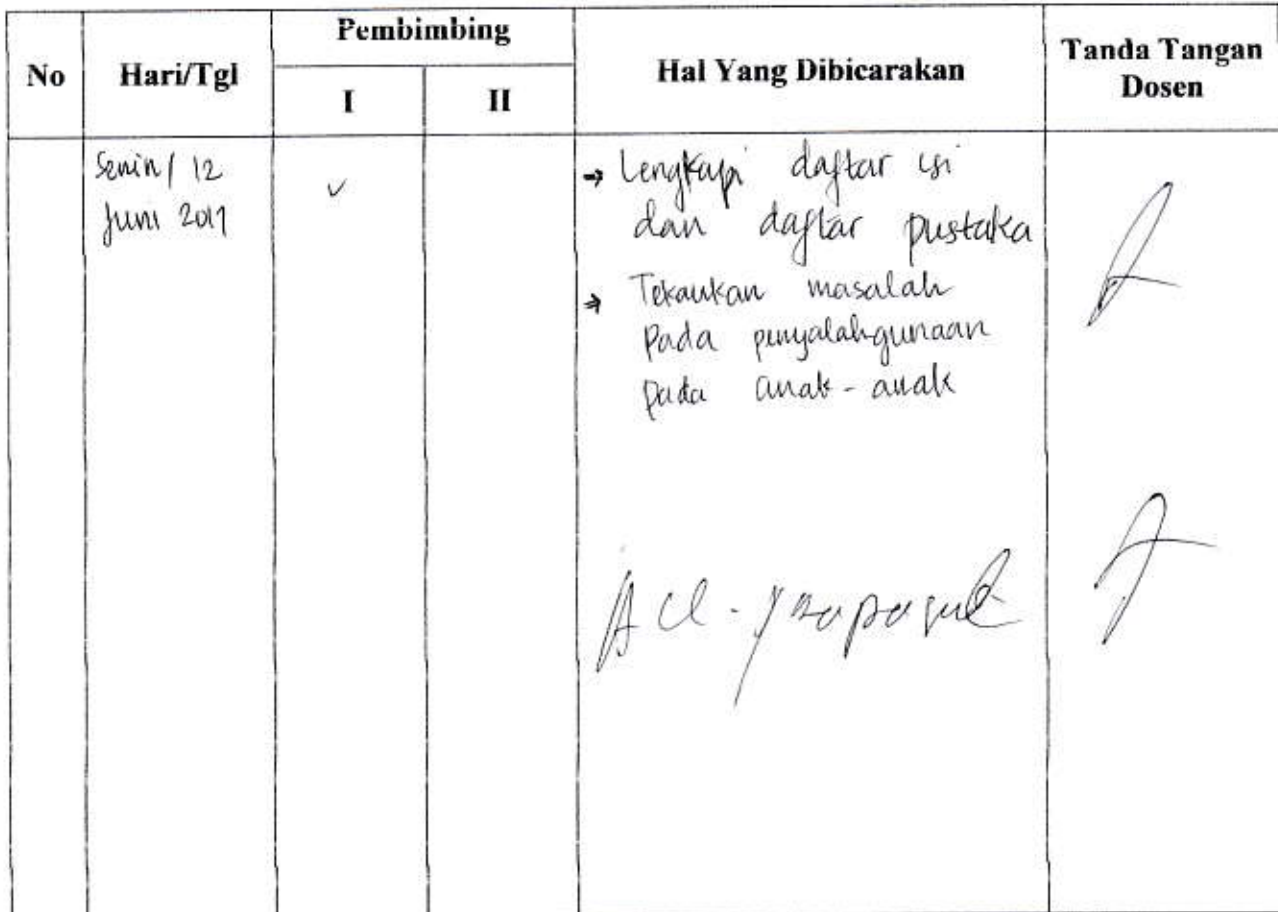 No Hari/Tgl Pembimbing Hal Yang Dibicarakan Tanda Tangan
Dosen
I II
Senin / 12
Juni 2017
✓
→ Lengkapi daftar isi
dan daftar pustaka
⇒ Tekankan masalah
Pada penyalahgunaan
pada anak-anak